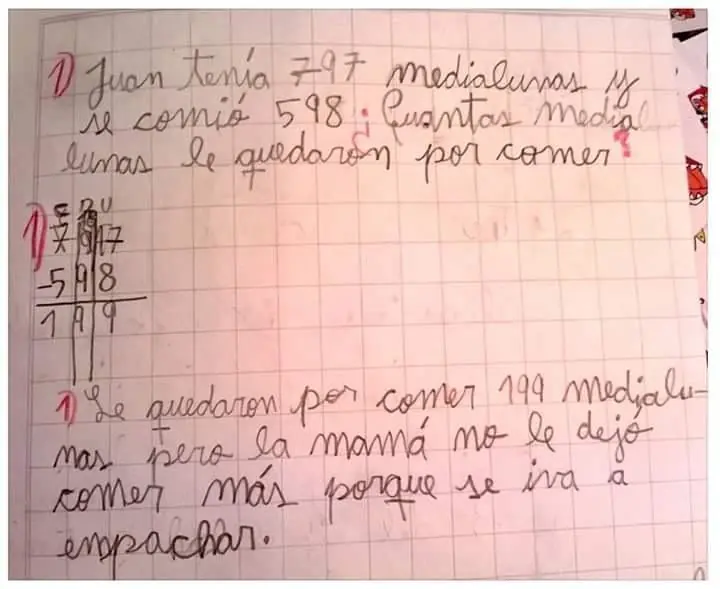 1) Juan tenía 797 medialunas y
se comió 598 ¿Cuantas medial
lunas le quedaron por comer?
C D U
1) 7 9 17
-5 9 8
1 9 9
1) Le quedaron por comer 199 medialu-
nas pero la mamá no le dejó
comer más porque se iva a
empachar.